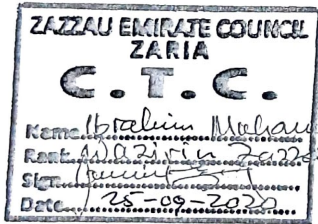 ZAZZAU EMIRATE COUNCIL
ZARIA
C.T.C.
Name Ibrahim
Rank Wazirin Zazza
Sign
Date 25-09-2020